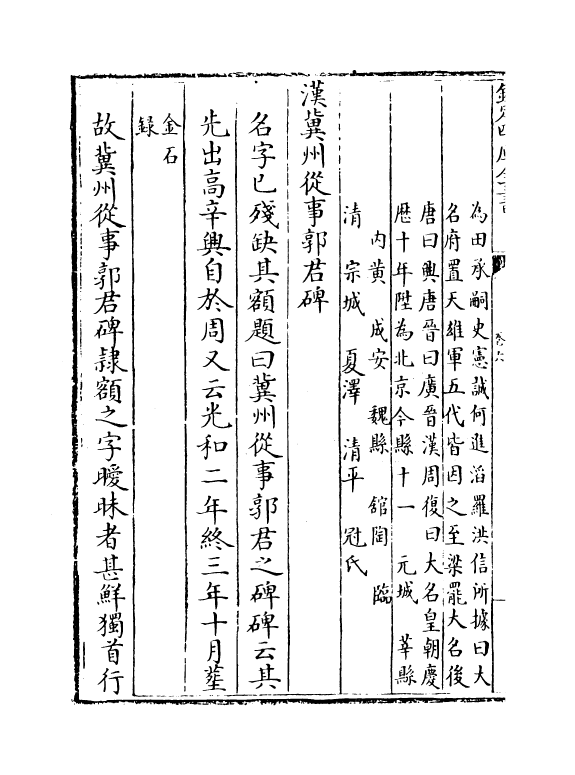 為田承嗣史憲誠何進滔羅洪信所據曰大
名府置天雄軍五代皆因之至梁罷大名後
唐曰興唐晉曰廣晉漢周復曰大名皇朝慶
歷十年陞為北京今縣十一　元城　莘縣
內黄　成安　魏縣　舘陶　臨
清　宗城　夏澤　清平　冠氏
漢冀州從事郭君碑
名字已殘缺其額題曰冀州從事郭君之碑碑云其
先出高辛興自於周又云光和二年終三年十月塟
金石
録
故冀州從事郭君碑隷額之字曖昧者甚鮮獨首行
卷六